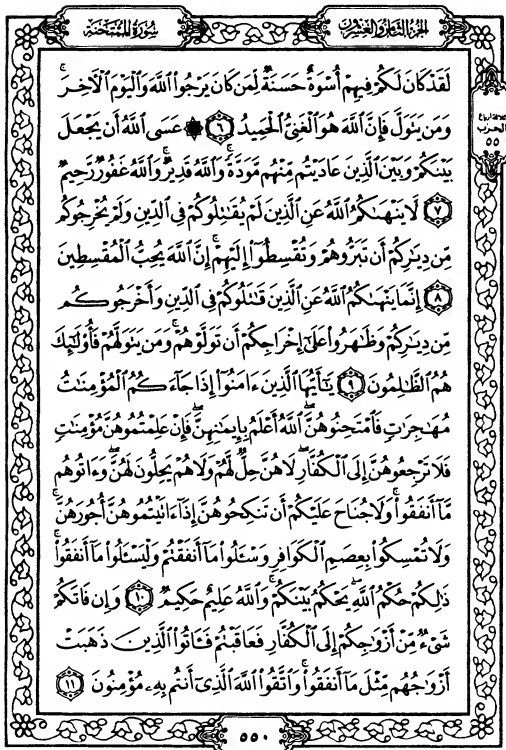 الجزء الثامن والعشرون
سورة الممتحنة
ثلاثة أرباع
الحزب
٥٥
لَّقَدْ كَانَ لَكُمْ فِيهِمْ أُسْوَةٌ حَسَنَةٌ لِّمَن كَانَ يَرْجُوا۟ ٱللَّهَ وَٱلْيَوْمَ ٱلْءَاخِرَ ۚ
وَمَن يَتَوَلَّ فَإِنَّ ٱللَّهَ هُوَ ٱلْغَنِىُّ ٱلْحَمِيدُ ٦ ۞ عَسَى ٱللَّهُ أَن يَجْعَلَ
بَيْنَكُمْ وَبَيْنَ ٱلَّذِينَ عَادَيْتُم مِّنْهُم مَّوَدَّةً ۚ وَٱللَّهُ قَدِيرٌ ۚ وَٱللَّهُ غَفُورٌ رَّحِيمٌ
٧ لَّا يَنْهَىٰكُمُ ٱللَّهُ عَنِ ٱلَّذِينَ لَمْ يُقَٰتِلُوكُمْ فِى ٱلدِّينِ وَلَمْ يُخْرِجُوكُم
مِّن دِيَٰرِكُمْ أَن تَبَرُّوهُمْ وَتُقْسِطُوٓا۟ إِلَيْهِمْ ۚ إِنَّ ٱللَّهَ يُحِبُّ ٱلْمُقْسِطِينَ
٨ إِنَّمَا يَنْهَىٰكُمُ ٱللَّهُ عَنِ ٱلَّذِينَ قَٰتَلُوكُمْ فِى ٱلدِّينِ وَأَخْرَجُوكُم
مِّن دِيَٰرِكُمْ وَظَٰهَرُوا۟ عَلَىٰٓ إِخْرَاجِكُمْ أَن تَوَلَّوْهُمْ ۚ وَمَن يَتَوَلَّهُمْ فَأُو۟لَٰٓئِكَ
هُمُ ٱلظَّٰلِمُونَ ٩ يَٰٓأَيُّهَا ٱلَّذِينَ ءَامَنُوٓا۟ إِذَا جَآءَكُمُ ٱلْمُؤْمِنَٰتُ
مُهَٰجِرَٰتٍ فَٱمْتَحِنُوهُنَّ ۖ ٱللَّهُ أَعْلَمُ بِإِيمَٰنِهِنَّ ۖ فَإِنْ عَلِمْتُمُوهُنَّ مُؤْمِنَٰتٍ
فَلَا تَرْجِعُوهُنَّ إِلَى ٱلْكُفَّارِ ۖ لَا هُنَّ حِلٌّ لَّهُمْ وَلَا هُمْ يَحِلُّونَ لَهُنَّ ۖ وَءَاتُوهُم
مَّآ أَنفَقُوا۟ ۚ وَلَا جُنَاحَ عَلَيْكُمْ أَن تَنكِحُوهُنَّ إِذَآ ءَاتَيْتُمُوهُنَّ أُجُورَهُنَّ ۚ
وَلَا تُمْسِكُوا۟ بِعِصَمِ ٱلْكَوَافِرِ وَسْـَٔلُوا۟ مَآ أَنفَقْتُمْ وَلْيَسْـَٔلُوا۟ مَآ أَنفَقُوا۟ ۚ
ذَٰلِكُمْ حُكْمُ ٱللَّهِ ۖ يَحْكُمُ بَيْنَكُمْ ۚ وَٱللَّهُ عَلِيمٌ حَكِيمٌ ١٠ وَإِن فَاتَكُمْ
شَىْءٌ مِّنْ أَزْوَٰجِكُمْ إِلَى ٱلْكُفَّارِ فَعَاقَبْتُمْ فَـَٔاتُوا۟ ٱلَّذِينَ ذَهَبَتْ
أَزْوَٰجُهُم مِّثْلَ مَآ أَنفَقُوا۟ ۚ وَٱتَّقُوا۟ ٱللَّهَ ٱلَّذِىٓ أَنتُم بِهِۦ مُؤْمِنُونَ ١١
٥٥٠